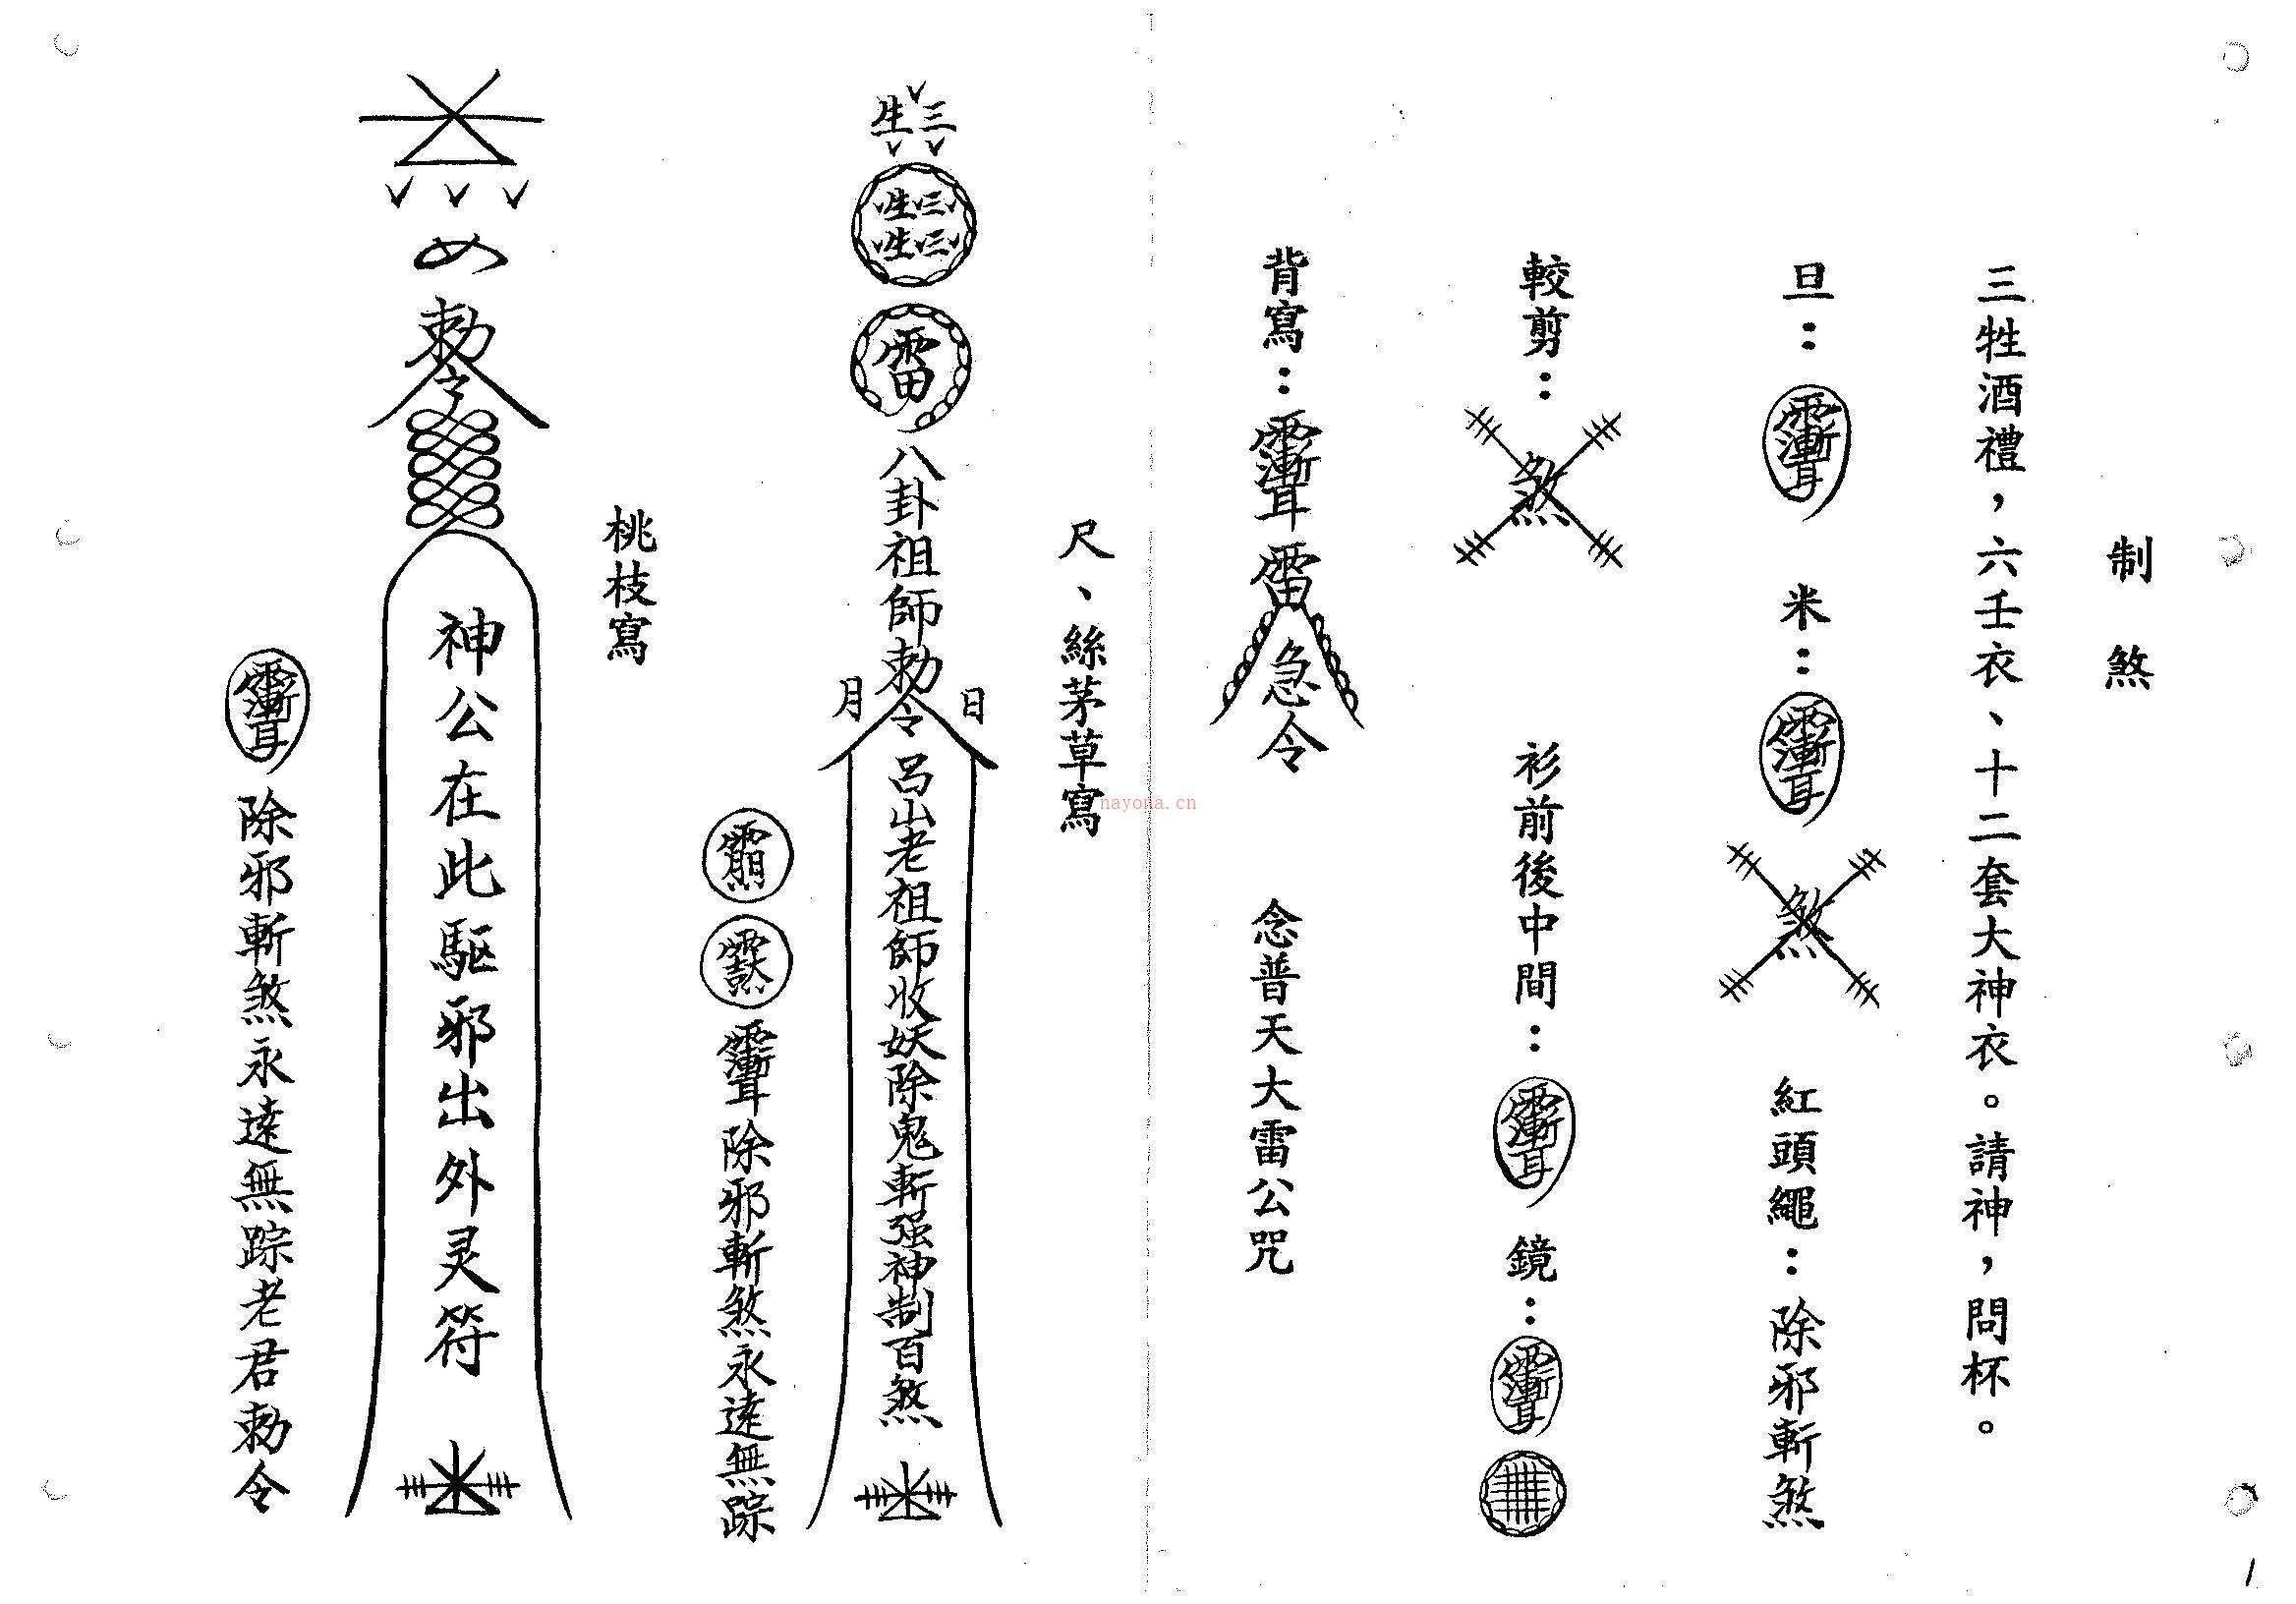 制煞
三牲酒禮，六壬衣、十二套大神衣。請神，問杯。
旦： 米： 煞 紅頭繩：除邪斬煞
較剪： 煞 衫前後中間： 鏡：
背寫： 雷急令 念普天大雷公咒
尺、絲茅草寫
三生
三三生生
雷
八卦祖師勅令
日月
呂山老祖師收妖除鬼斬强神制百煞
除邪斬煞永遠無踪
桃枝寫
勅令
神公在此駆邪出外灵符
除邪斬煞永遠無踪老君勅令
nayona.cn
1